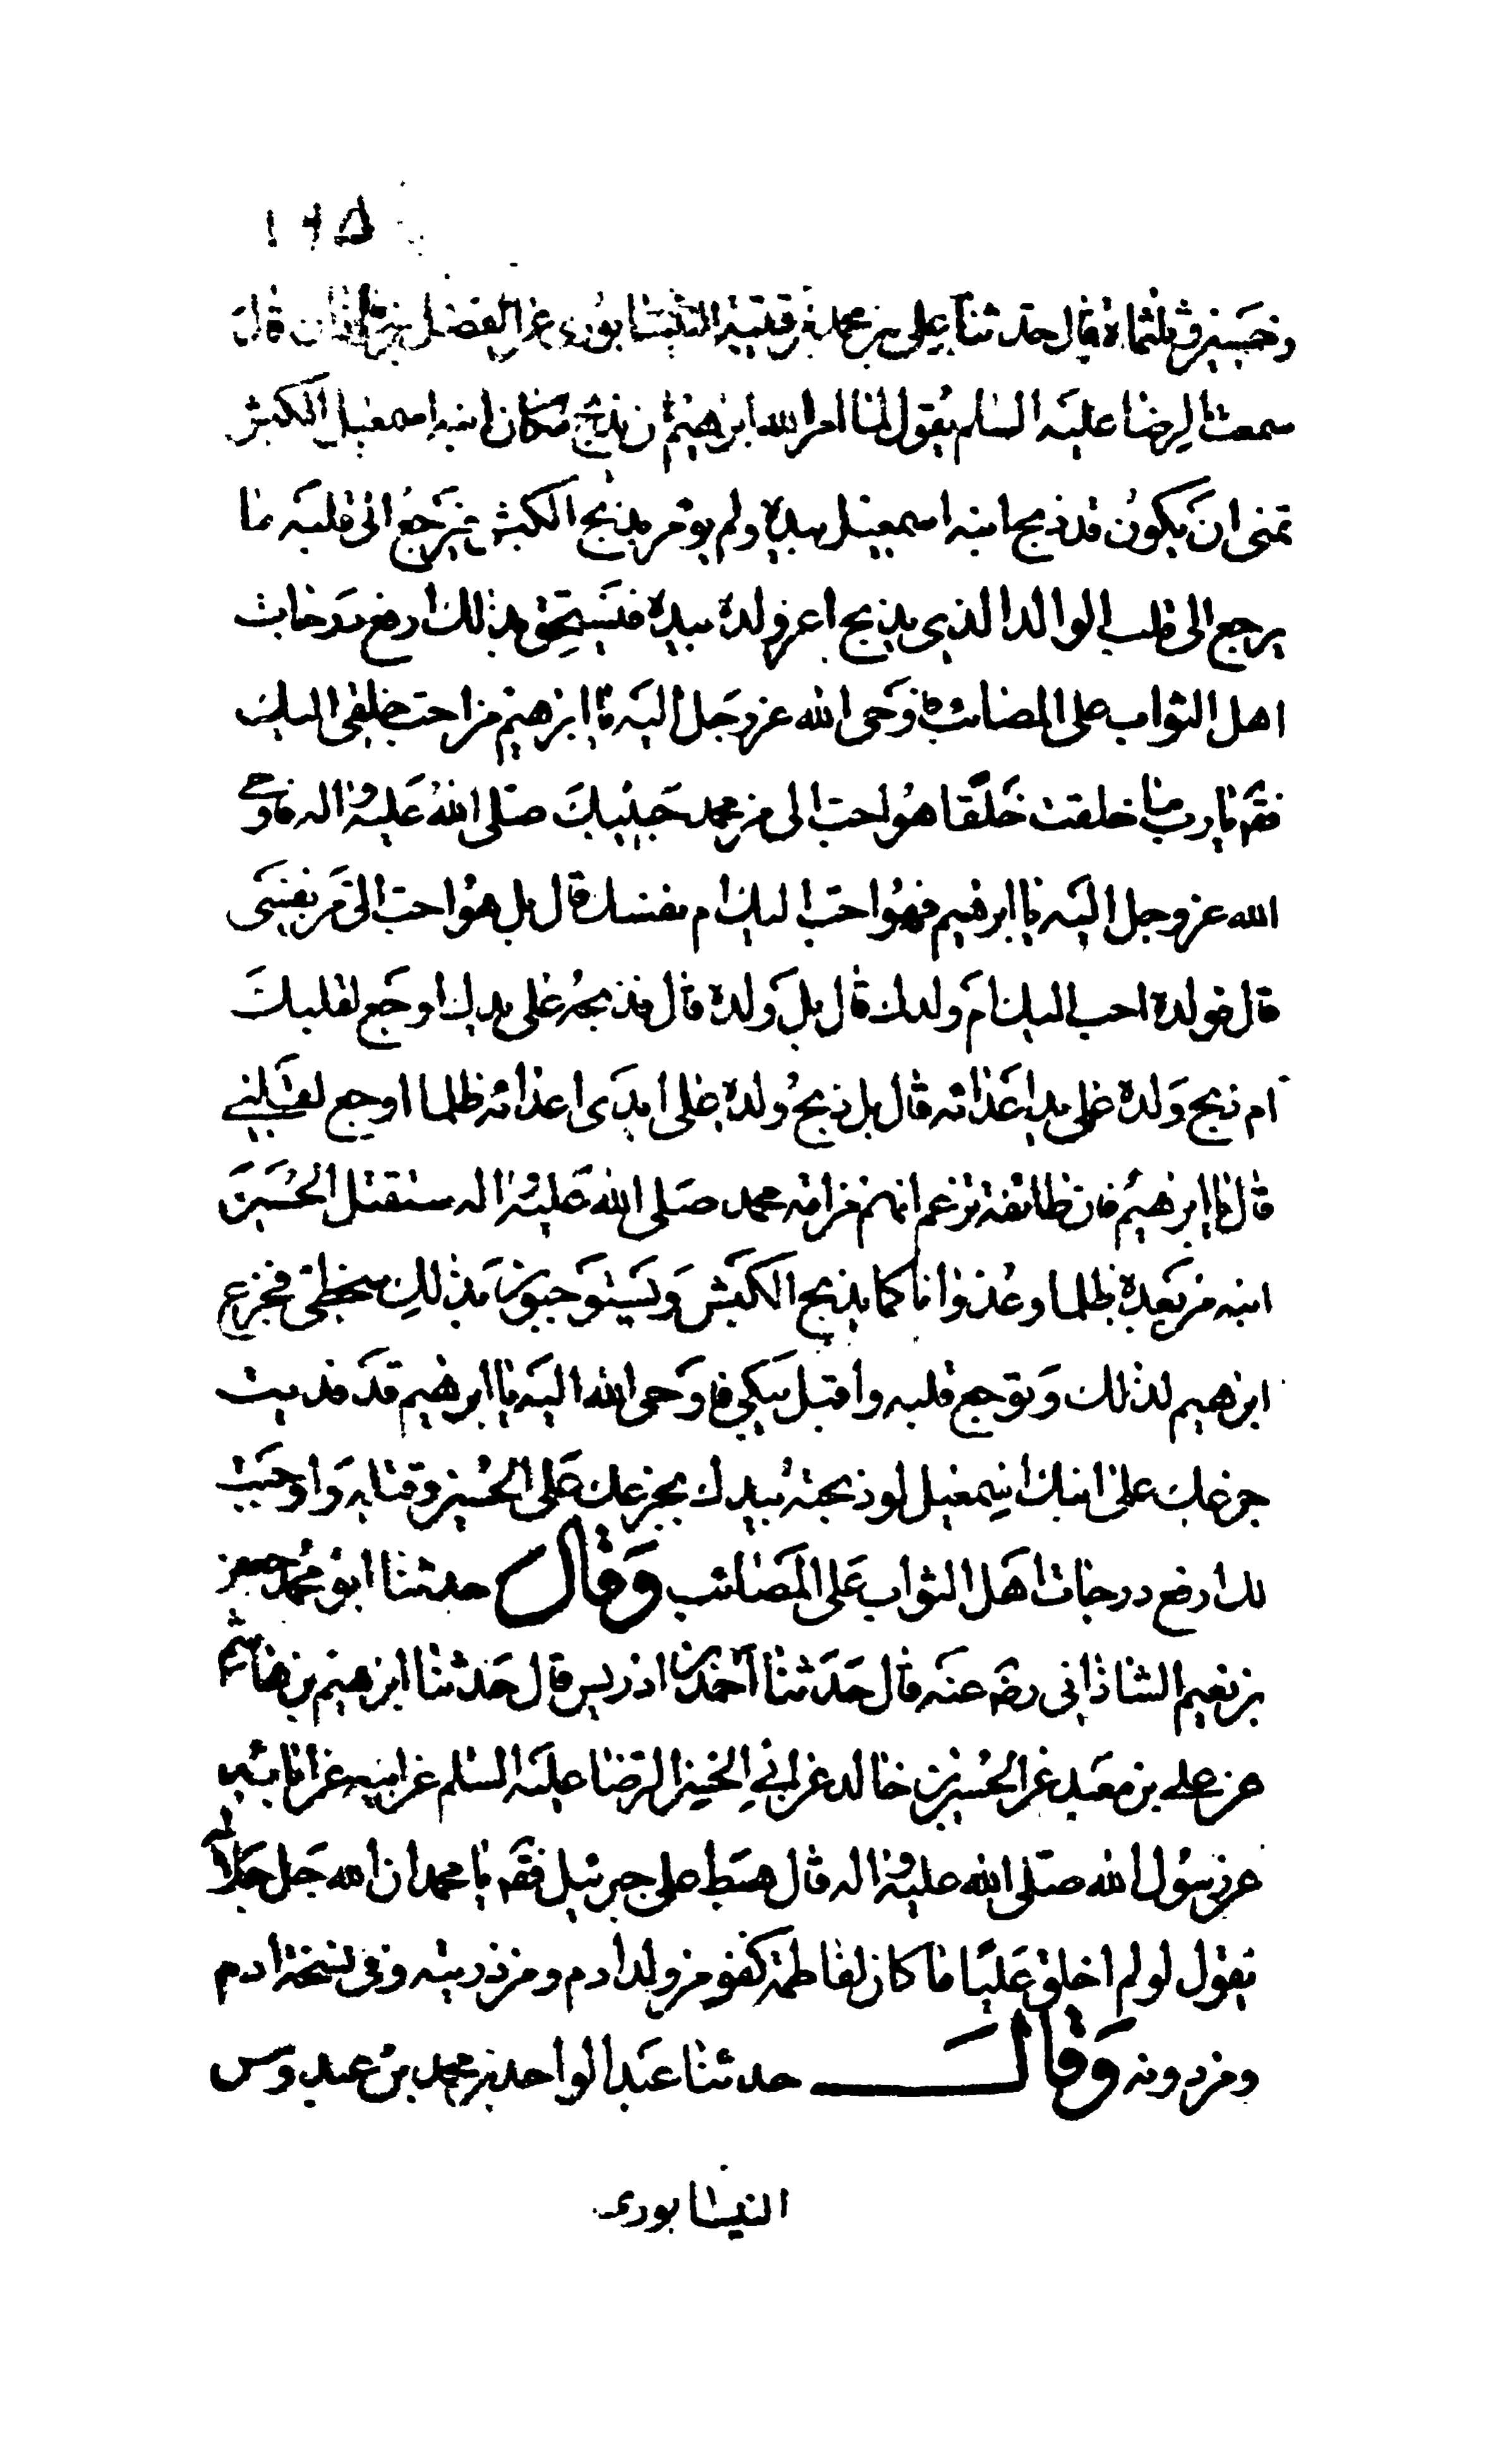 ١٢٥
وخمسين وثلثمائة قال حدثنا علي بن محمد بن قتيبة النيسابوري عن الفضل بن شاذان قال
سمعت الرضا عليه السلم يقول لما امر الله ابرهيم ان يذبح مكان ابنه اسمعيل الكبش
تمنى ان يكون قد ذبح ابنه اسمعيل بيده ولم يؤمر بذبح الكبش ليرجع الى قلبه ما
يرجع الى قلب الوالد الذي يذبح اعز ولده بيده فيستحق بذلك ارفع درجات
اهل الثواب على المصائب فاوحى الله عز وجل اليه يا ابرهيم من احب خلقي اليك
فقه يا رب ما خلقت خلقا هو احب الى من محمد حبيبك صلى الله عليه واله فاوحى
الله عز وجل اليه يا ابرهيم فهو احب اليك ام نفسك قال بل هو احب الى من نفسى
قال فولده احب اليك ام ولدك قال بل ولده قال فذبحه على يديك اوجع لقلبك
ام ذبح ولده على يد اعدائه قال بل ذبح ولده على ايدى اعدائه ظلما اوجع لقلبي
قال يا ابرهيم فان طائفة تزعم انهم من امة محمد صلى الله عليه واله ستقتل الحسين
ابنه من بعده ظلما وعدوانا كما يذبح الكبش ويستوجبون بذلك سخطى فجزع
ابرهيم لذلك وتوجع قلبه واقبل يبكي فاوحى الله اليه يا ابرهيم قد فديت
جزعك على ابنك اسمعيل لو ذبحته بيدك بجزعك على الحسين وقتله واوجبت
لك ارفع درجات اهل الثواب على المصائب وقال حدثنا ابو محمد جعفر
بن نعيم الشاذاني رضه عنه قال حدثنا احمد بن ادريس قال حدثنا ابرهيم بن هاشم
عن علي بن معبد عن الحسين بن خالد عن ابي الحسن الرضا عليه السلم عن ابيه عن ابائه
عن رسول الله صلى الله عليه واله قال هبط على جبرئيل فقه يا محمد ان الله جل جلاله
يقول لو لم اخلق عليا ما كان لفاطمة كفو من ولد ادم ومن ذريته وفى نسخة ادم
ومن دونه وقال حدثنا عبد الواحد بن محمد بن عبدوس
النيسابورى